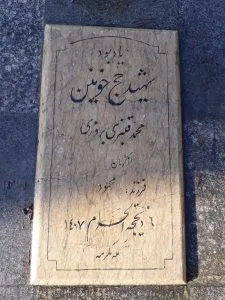 یادبود
شهید حج خونین
محمد قنبری برزی
فرزند: محمود
۶ ذیحجه الحرام ۱۴۰۷
مکه مکرمه